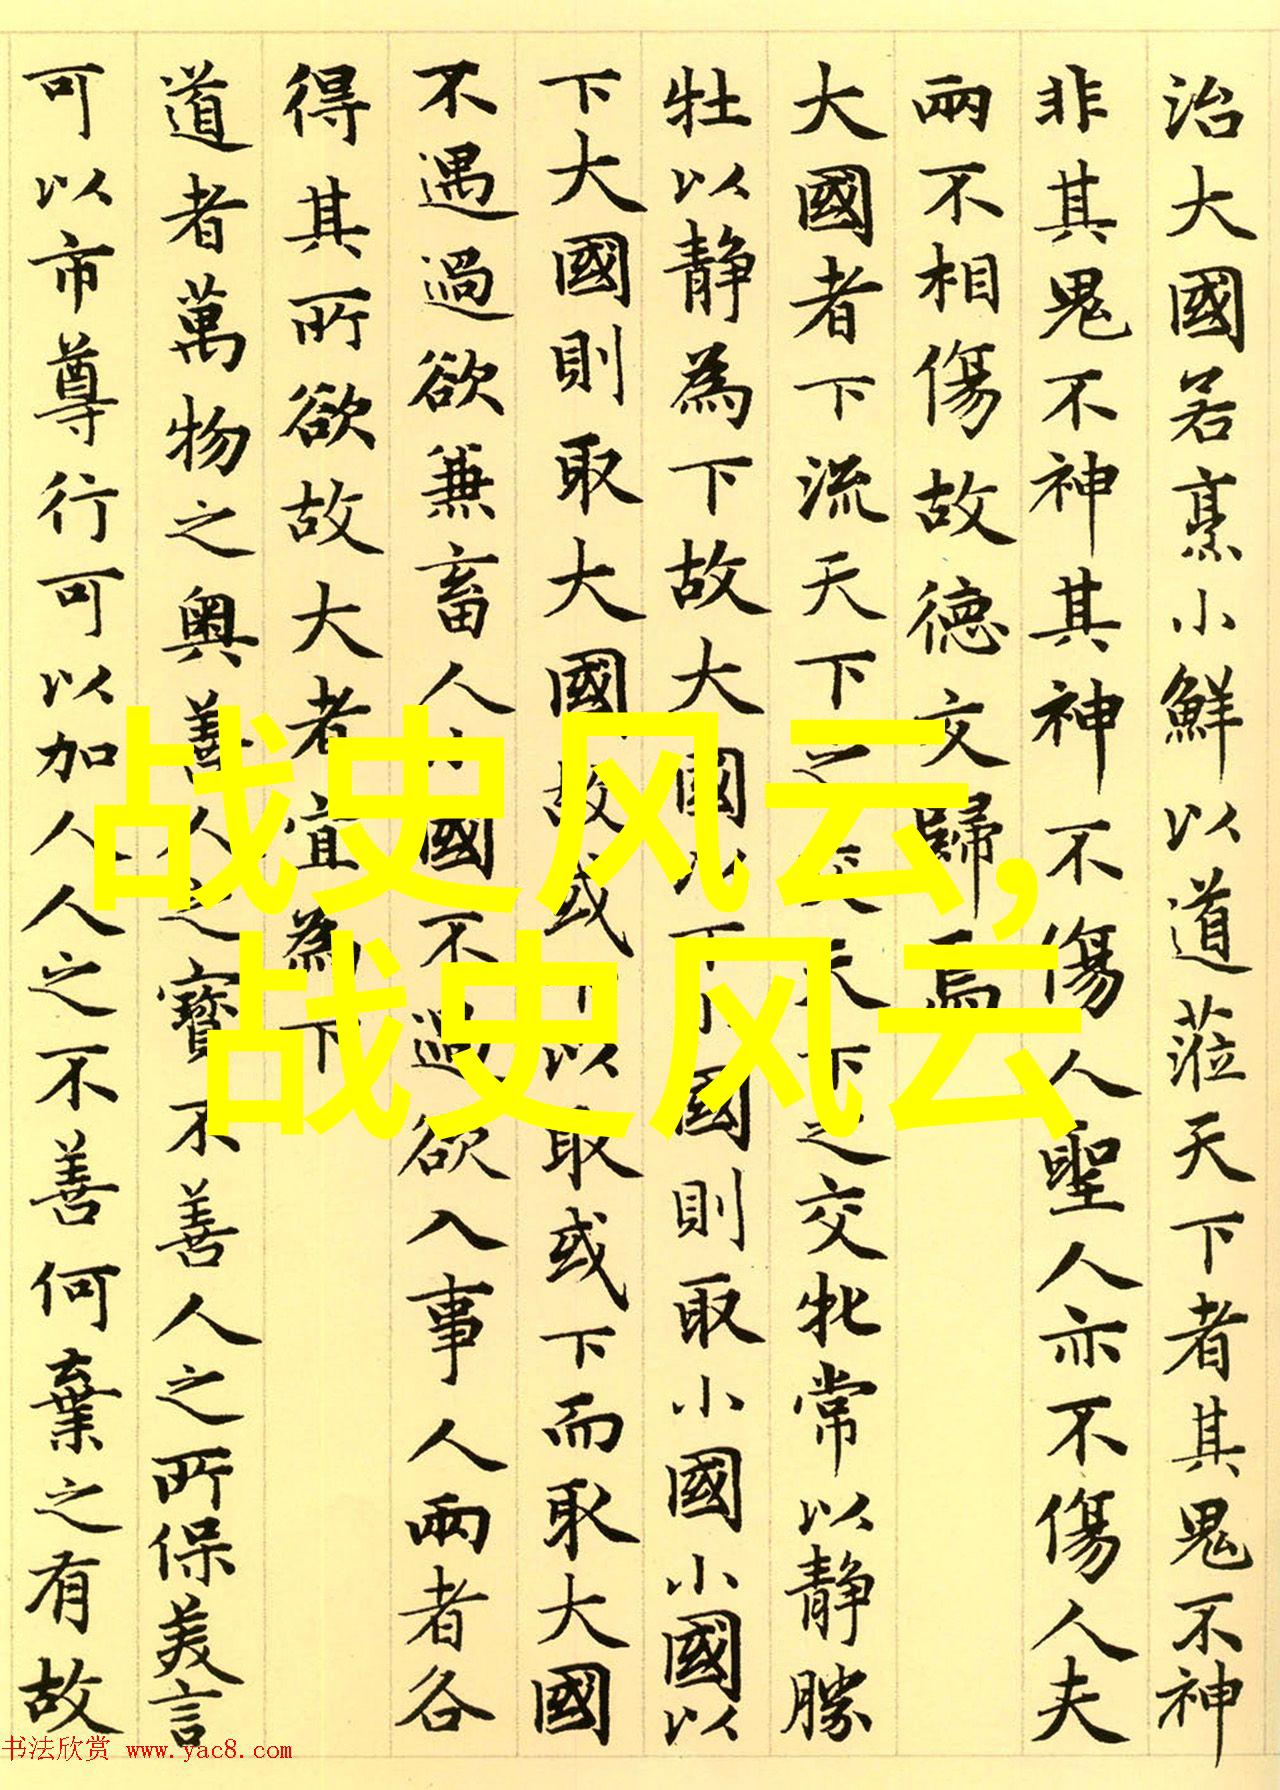 治大國若烹小鮮以道蒞天下者其鬼不神
非其鬼不神其神不傷人聖人亦不傷人夫
兩不相傷故德交歸焉
大國者下流天下之交天下之交牝常以静勝
牡以静為下故大國以下小國則取小國小國以
下大國則取大國故或下以取或下而取大國
不遇過欲兼畜人小國不過欲入事人兩者各
得其所欲故大者宜為下
道者萬物之奧善人之寶不善人之所保美言
可以市尊行可以加人人之不善何棄之有故
战史风云,
战史风云
书法欣赏 www.yac8.com